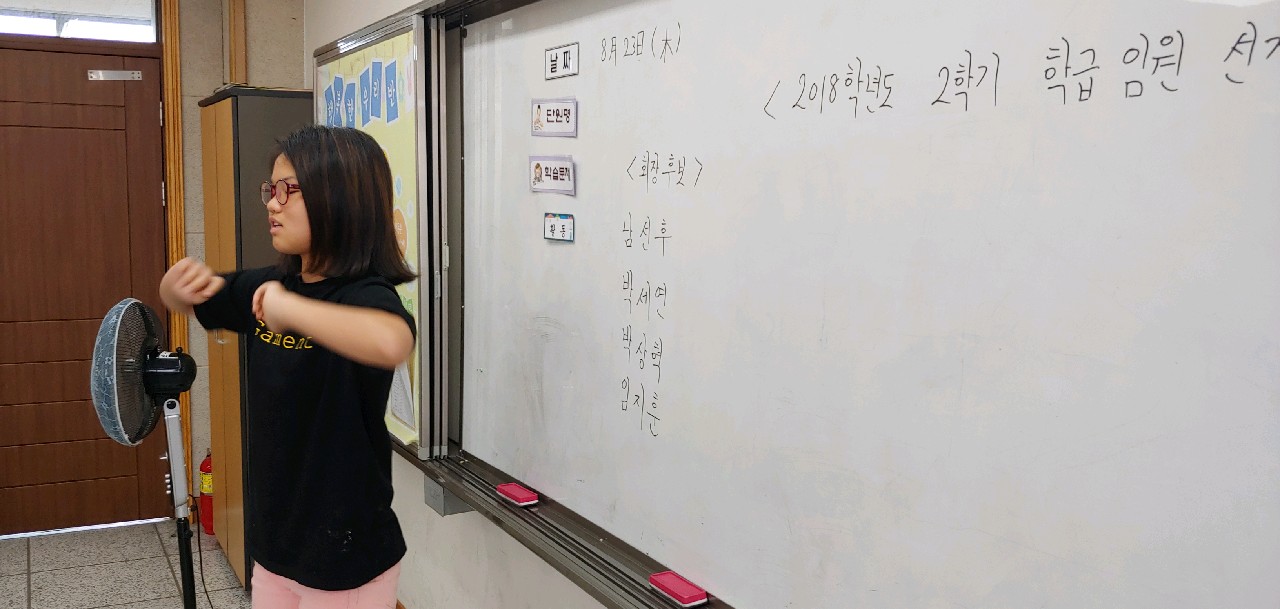 날짜
8月 23日 (木)
< 2018학년도 2학기 학급 임원 선거
단원명
학습문제
<회장후보>
활동
남선후
박세연
박상혁
임지훈
우리반
Gamenc